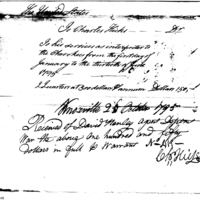 The United States
To Charles Hicks Dr
To his services as interpreter to
the Cherokees from the first day of
January to the thirtieth of
1795
2 Quarters at 300 dollars annum Dollars 150
Knoxville 28 October 1795
Received of David Henley agent Depart
War the above one hundred and fifty
dollars in full